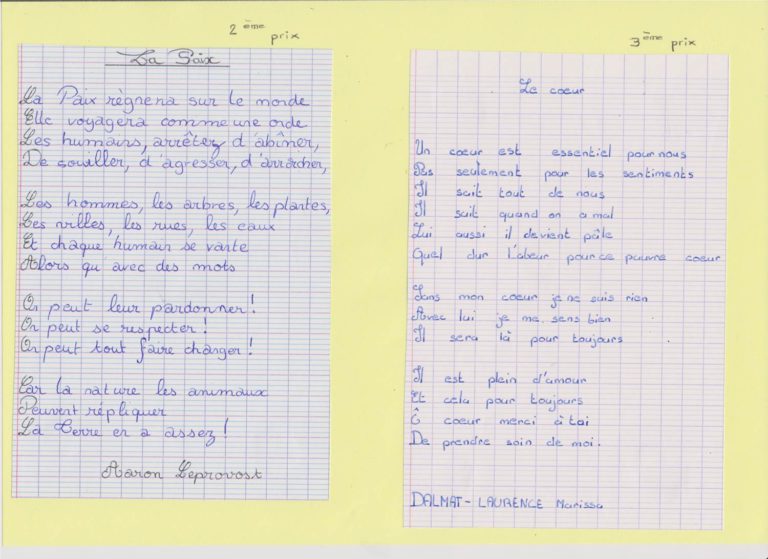 2 ème prix
La Paix
La Paix règnera sur le monde
Elle voyagera comme une onde
Les humains, arrêtez d'abîmer,
De souiller, d'agresser, d'arracher,
Les hommes, les arbres, les plantes,
Les villes, les rues, les eaux
Et chaque humain se vante
Alors qu'avec des mots
On peut leur pardonner !
On peut se respecter !
On peut tout faire changer !
Car la nature les animaux
Peuvent répliquer
La Terre en a assez !
Aaron Leprovost
3 ème prix
Le coeur
Un coeur est essentiel pour nous
Pas seulement pour les sentiments
Il sait tout de nous
Il sait quand on a mal
Lui aussi il devient pâle
Quel dur labeur pour ce pauvre coeur
Sans mon coeur je ne suis rien
Avec lui je me sens bien
Il sera là pour toujours
Il est plein d'amour
Et cela pour toujours
Ô coeur merci à toi
De prendre soin de moi.
DALMAT - LAURENCE Marissa